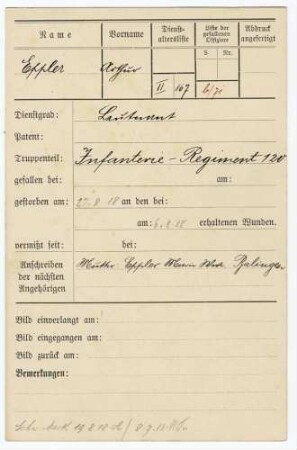 Name Vorname Dienst-altersliste Liste der gefallenen Offiziere Abdruck angefertigt
S Nr.
Eppler Arthur II 167 6/71
Dienstgrad: Leutnant
Patent:
Truppenteil: Infanterie-Regiment 120
gefallen bei: am:
gestorben am: 27.8.18 an den bei:
am: 6.8.18 erhaltenen Wunden.
vermißt seit: bei:
Anschreiben der nächsten Angehörigen Mutter: Eppler Marie Balingen
Bild einverlangt am:
Bild eingegangen am:
Bild zurück am:
Bemerkungen: